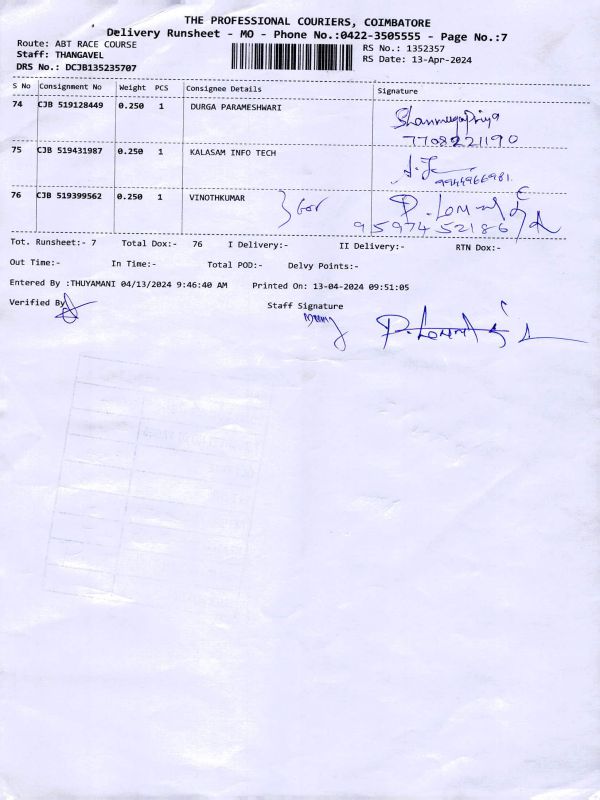 THE PROFESSIONAL COURIERS, COIMBATORE
Delivery Runsheet - MO - Phone No.:0422-3505555 - Page No.:7
Route: ABT RACE COURSE
RS No.: 1352357
Staff: THANGAVEL
RS Date: 13-Apr-2024
DRS No.: DCJB135235707
S No Consignment No Weight PCS Consignee Details Signature
74 CJB 519128449 0.250 1 DURGA PARAMESHWARI Shanmugapriya
7708221190
75 CJB 519431987 0.250 1 KALASAM INFO TECH
9944966981
76 CJB 519399562 0.250 1 VINOTHKUMAR
9597452186
Tot. Runsheet:- 7 Total Dox:- 76 I Delivery:- II Delivery:- RTN Dox:-
Out Time:- In Time:- Total POD:- Delvy Points:-
Entered By :THUYAMANI 04/13/2024 9:46:40 AM Printed On: 13-04-2024 09:51:05
Verified By
Staff Signature